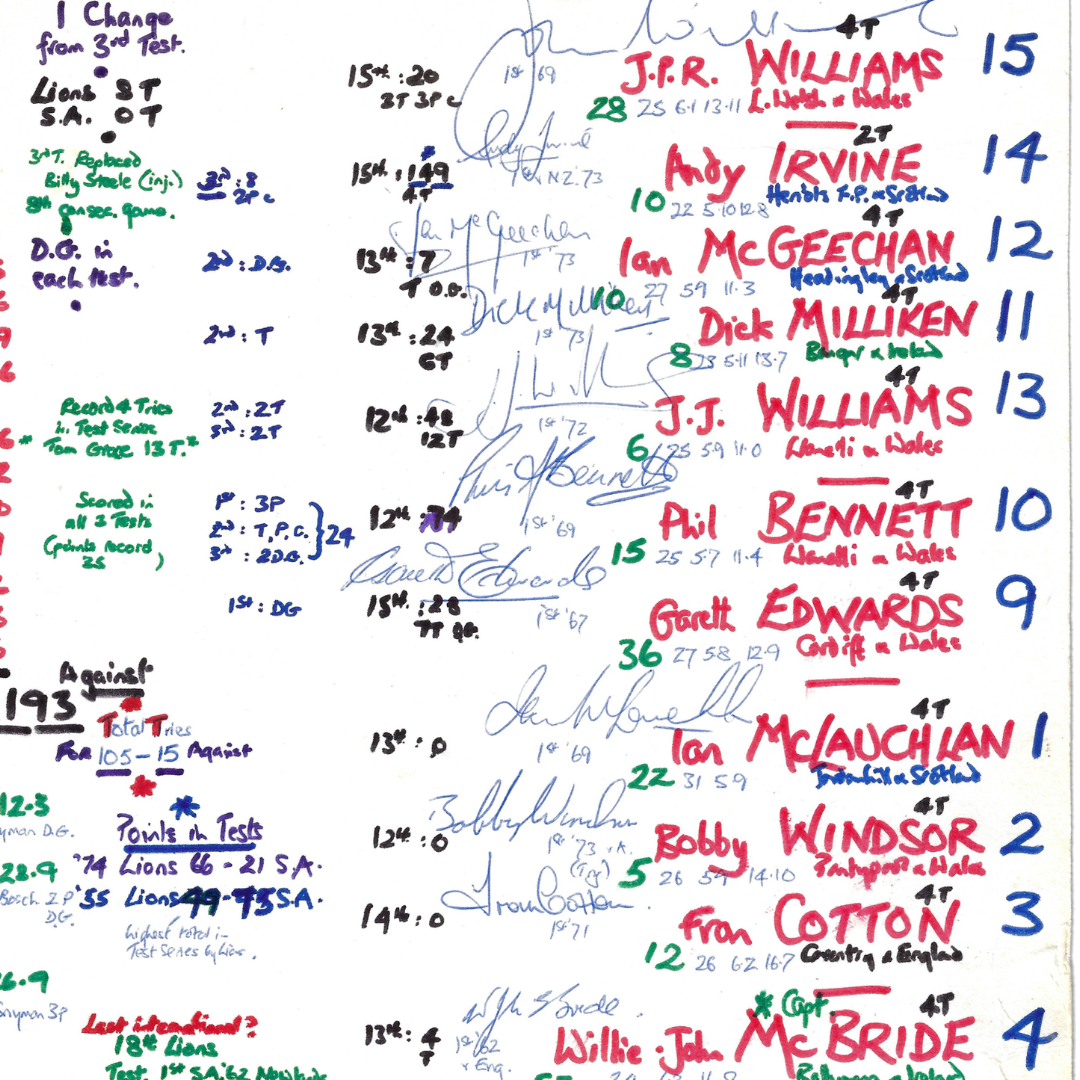 1 Change
from 3rd Test.
Lions 8T
S.A. 0T
15th : 20
2T 3P c
1st '69
4T
J.P.R. WILLIAMS 15
28 25 6·1 13·11 L. Welsh & Wales
3rd T. Replaced
Billy Steele (inj.)
8th consec. game.
3rd : 8
2P c
15th : 149
4T
1st v N.Z. '73
2T
Andy IRVINE 14
10 22 5·10 12·8 Heriots F.P. & Scotland
D.G. in
each test.
2nd : D.G.
13th : 7
T D.G.
Ian McGeechan
1st '73
4T
Ian McGEECHAN 12
10 27 5 9 11·3 Headingley & Scotland
2nd : T
13th : 24
6T
Dick Milliken
1st '73
4T
Dick MILLIKEN 11
8 23 5·11 13·7 Bangor & Ireland
Record 4 Tries
in Test Series
* Tom Grace 13T. *
2nd : 2T
3rd : 2T
12th : 48
12T
1st '72
4T
J.J. WILLIAMS 13
6 25 5 9 11·0 Llanelli & Wales
Scored in
all 3 Tests
(points record
35 )
1st : 3P
2nd : T, P, C.
3rd : 2D.G.
24
12th : 74
Phil Bennett
1st '69
4T
Phil BENNETT 10
15 25 5 7 11·4 Llanelli & Wales
1st : DG
15th : 28
7T DG.
Gareth Edwards
1st '67
4T
Gareth EDWARDS 9
36 27 5 8 12·9 Cardiff & Wales
Against
193
Total Tries
FOR 105 – 15 Against
13th : 0
1st '69
4T
Ian McLAUCHLAN 1
22 31 5 9 Jordanhill & Scotland
12·3
yman D.G.
*
Points in Tests
'74 Lions 66 - 21 S.A.
'55 Lions 49 - 75 S.A.
highest total in
Test Series by Lions.
28·9
Bosch 2P
D.G.
12th : 0
Bobby Windsor
1st '73 v A.
(Try)
4T
Bobby WINDSOR 2
5 26 5 9 14·10 Pontypool & Wales
14th : 0
Fran Cotton
1st '71
4T
Fran COTTON 3
12 26 6·2 16·7 Coventry & England
6·9
nyman 3P
Last international?
18th Lions
Test. 1st S.A. '62
13th : 4
T
1st '62
v Eng.
* Capt.
4T
Willie-John McBRIDE 4
Ballymena & Ireland